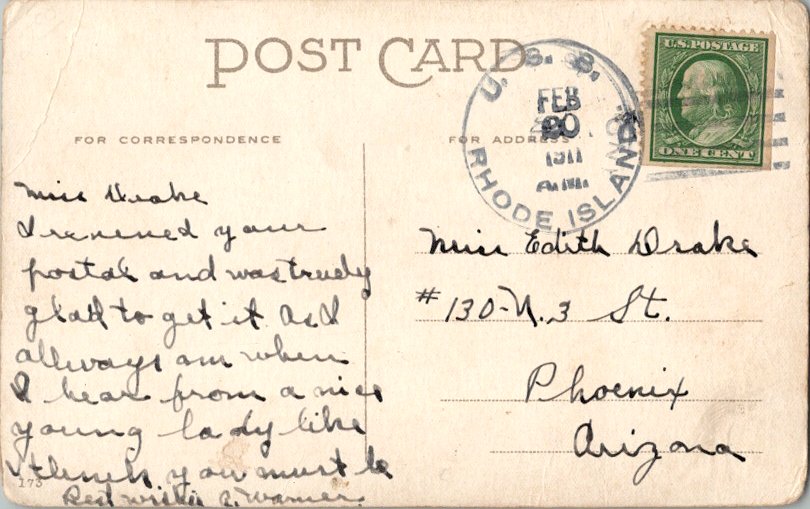 POST CARD
FOR CORRESPONDENCE
FOR ADDRESS
U. S. S.
FEB
20
1911
A.M.
RHODE ISLAND
U.S. POSTAGE
ONE CENT
Miss Drake
I recieved your
postal and was truely
glad to get it as I
allways am when
I hear from a nice
young lady like
I think you must be
Best wishes A. Warner.
173
Miss Edith Drake
#130-N. 3 St.
Phoenix
Arizona